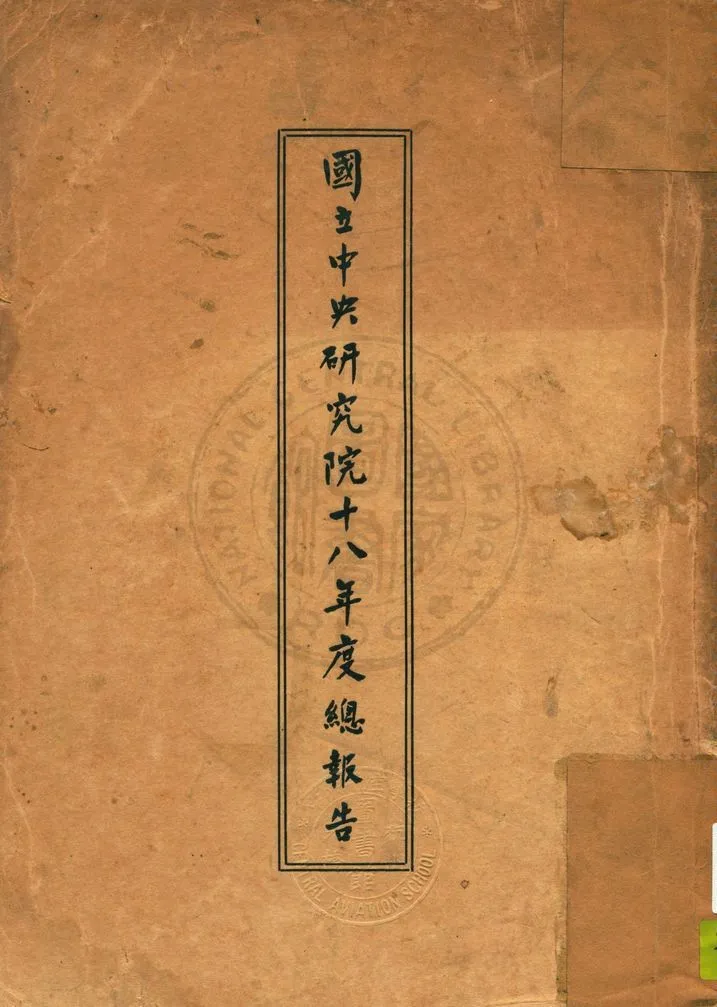 國立中央研究院十八年度總報告
NATIONAL CENTRAL LIBRARY
CENTRAL AVIATION SCHOOL